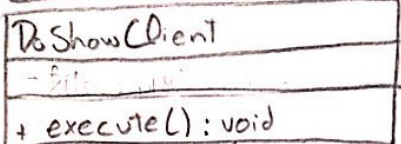 DoShowClient
+ execute() : void